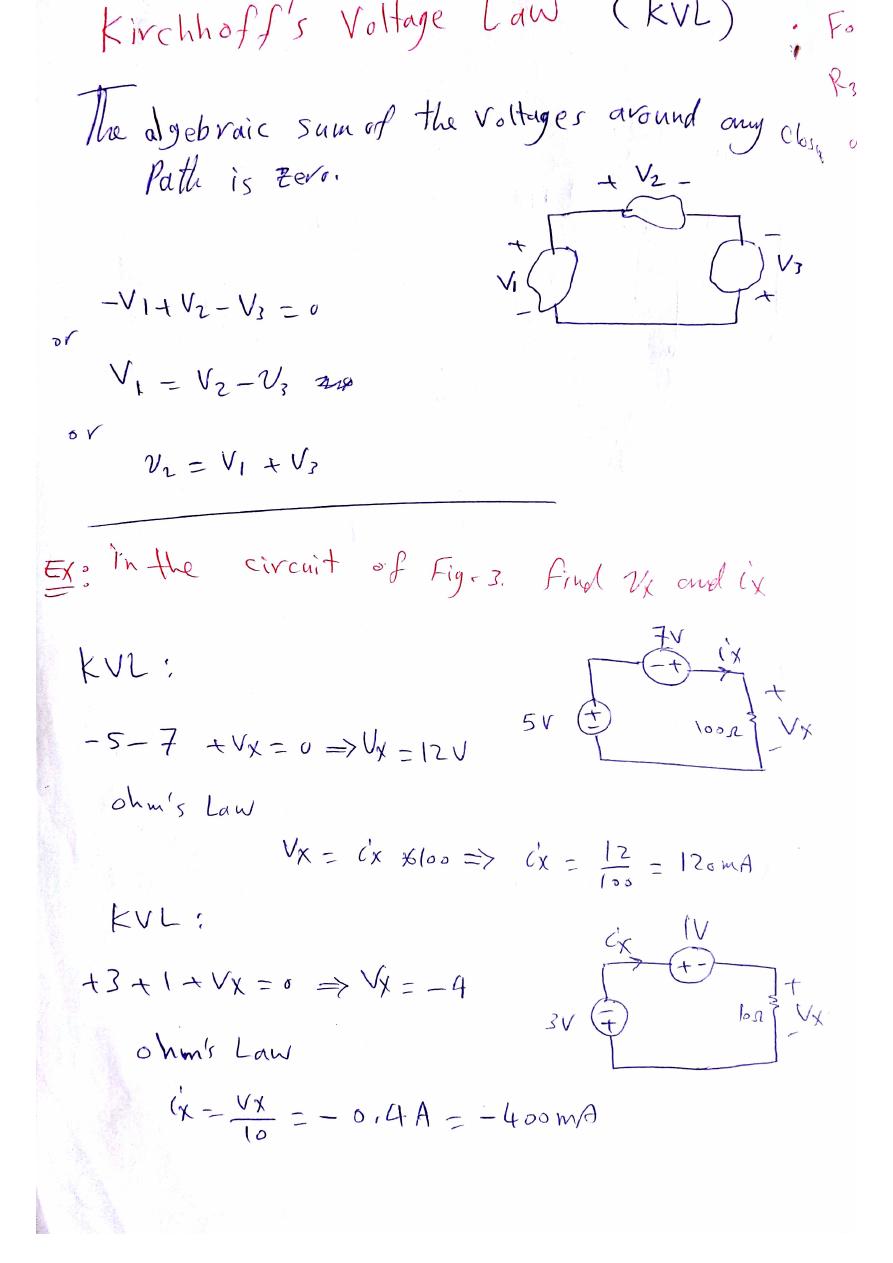 Kirchhoff's Voltage Law (KVL) : Fo
R3
The algebraic sum of the voltages around any
Path is zero.
+ V2 -
+ V1 -
- V3 +
-V1 + V2 - V3 = 0
or
V1 = V2 - V3
or
V2 = V1 + V3
Ex: In the circuit of Fig. 3. find Vx and ix
KVL :
7V
- +
ix
5V
+ -
100Ω
+ Vx -
-5 - 7 + Vx = 0 ⇒ Vx = 12V
ohm's Law
Vx = ix * 100 ⇒ ix = 12/100 = 120mA
KVL :
ix
1V
+ -
3V
- +
10Ω
+ Vx -
+3 + 1 + Vx = 0 ⇒ Vx = -4
ohm's Law
ix = Vx/10 = - 0.4 A = -400mA